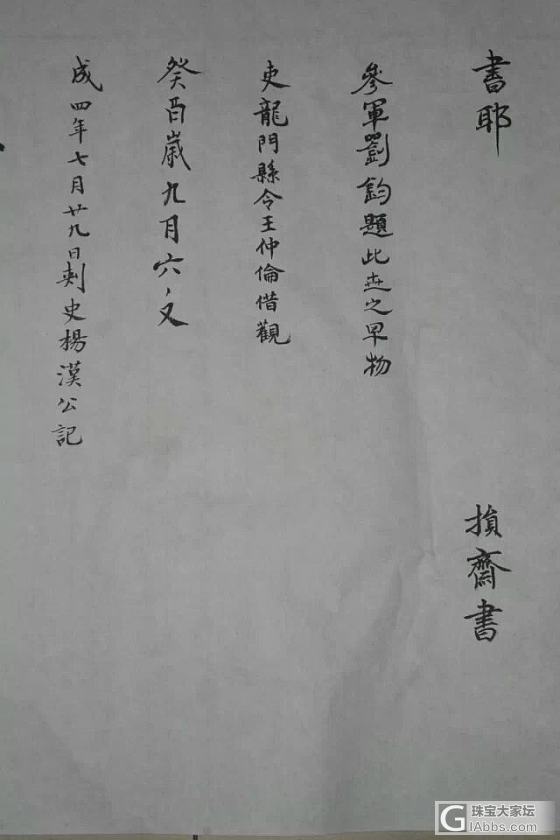 書耶
損齋書
參軍劉鈞題此世之早物
吏龍門縣令王仲倫借觀
癸酉歲九月六又
成四年七月廿九日刺史楊漢公記
珠宝大家坛
GIAbbs.com